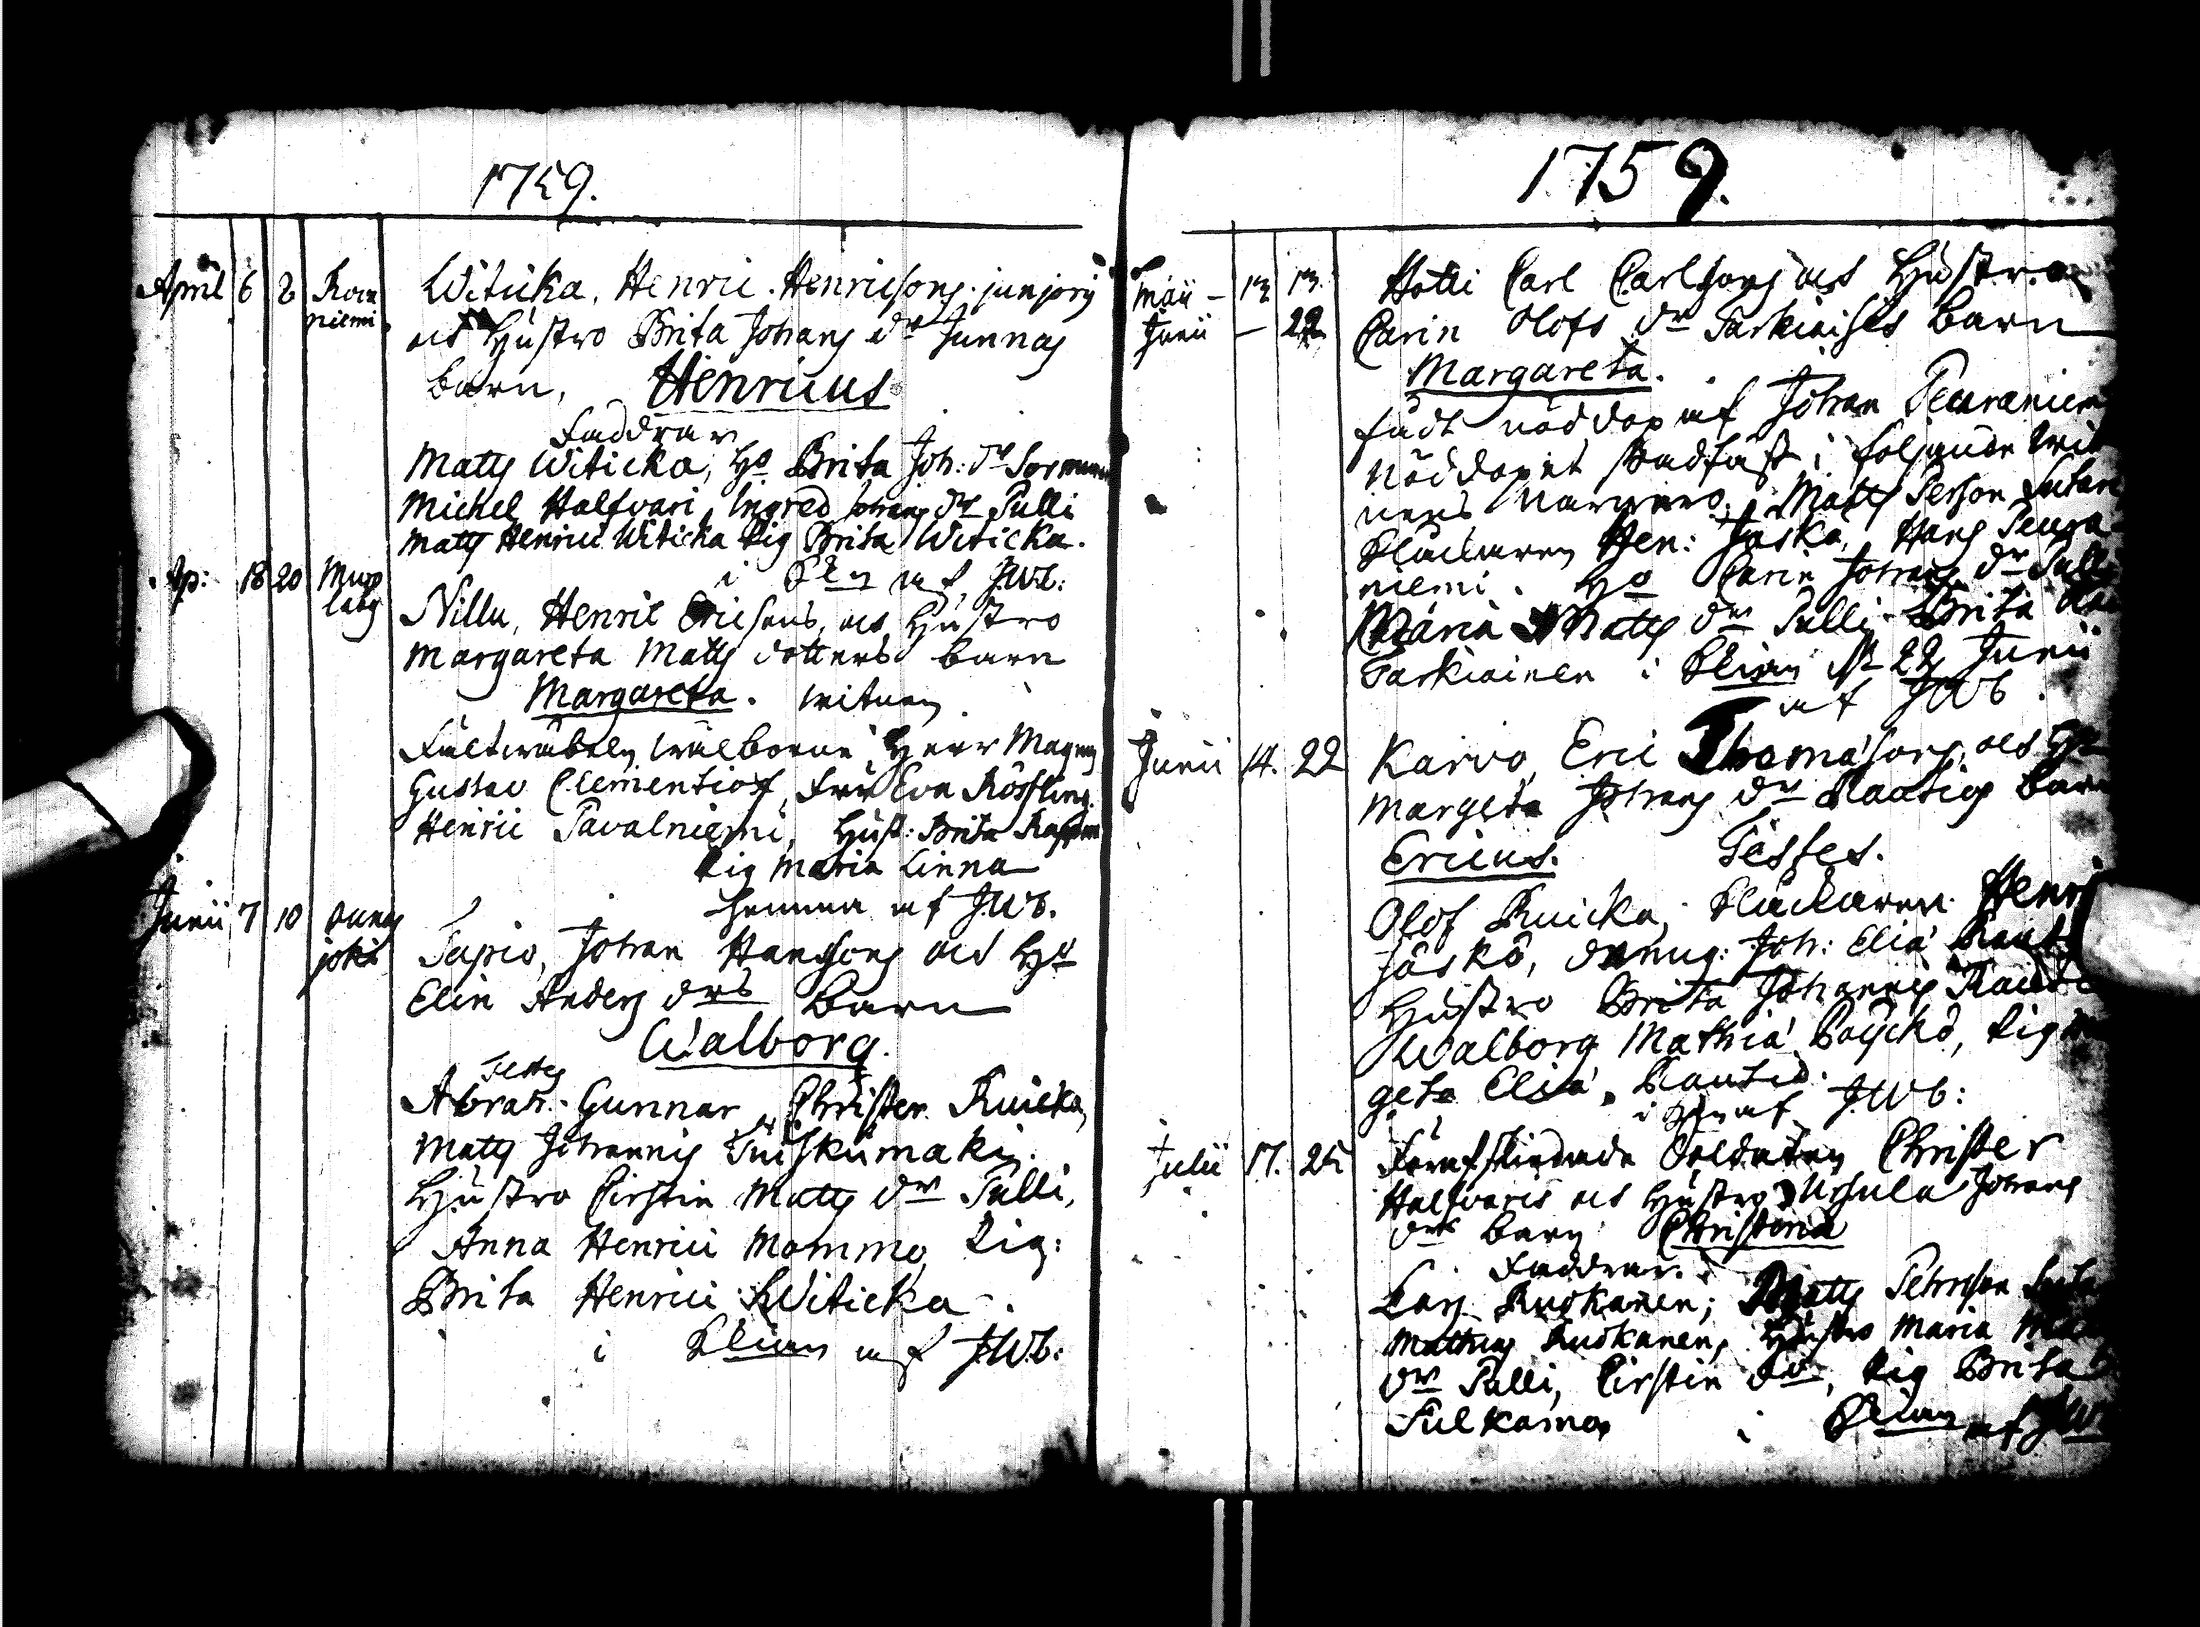 1759.
April 6 8 Rova niemi
Witicka, Henric Henricsons junjors
och Hustro Brita Johans dr Junnas
barn, Henricus
Faddrar
Matts Witicka, Ho Brita Joh: dr Sormun
Michel Halfvari, Ingred Johans dr Pulli
Matts Henrici Witicka Pig Brita Witicka.
i af JWb:
Ap: 18 20
Nillu, Henric Ericsons, och Hustro
Margareta Matts dotters barn
Margareta. witnen
Fältwäbeln wälborne Herr Magnus
Gustav Clementiof, Fru Eva Rössling.
Henric Pavalniemi, Hust: Brita
Pig Maria Linna
hemma af JWb.
Junii 7 10 Ounas joki
Tapio, Johan Hansons och Ho
Elin Anders drs barn
Walborg.
Testes
Abrah. Gunnar, Christer Kuicka,
Matts Johannis
Hustro Cirstin Matts dr Pulli,
Anna Henrici Mommo, Pig:
Brita Henrici Witicka.
i Kyrkan af JWb:
1759.
Maii – 13 13.
Junii – 22
Hotti Carl Carlsons och Hustros
Carin Olofs dr Tarkiaises barn
Margareta.
födt nöddop af Johan Peuraniemi
Nöddopet stadfäst i följande wit
ners närwaro. Matts Person
Klockaren Hen: Jaskö, Hans Peura
niemi. Ho Carin Johans dr Pulli
Maria Matts dr Pulli Brita
Tarkiainen i d. 22 Junii
af JWb.
Junii 14. 22
Karvo, Eric Thomasons, och Ho
Margeta Johans dr Kautios barn
Ericus. Testes.
Olof Kuicka, Klockaren Henr
Jäskö, Joh: Eliæ Kaut
Hustro Brita Johannis Kauti
Walborg Mathiæ Poyckö, Pig
geta Eliæ, Kautio.
i af JWb:
Julii 17. 25
Förafskedade Soldaten Christer
Halfvaris och Hustro Ursula Johans
drs barn Christina
Faddrar.
Lars Ruokanen; Matts Pehrson
Mathias Ruokanen, Hustro Maria
dr Pulli, Cirstin do, Pig Brita
Sulkama i Kyrkan af JWb